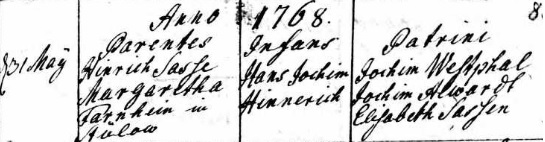 Anno 1768. 8
Parentes Infans Patrini
31 Maÿ Hinrich Sasse Hans Jochim Jochim Westphal
Margaretha Hinnerich Jochim Alwardt
Farnhein in Elisabeth Sassen
Stülow